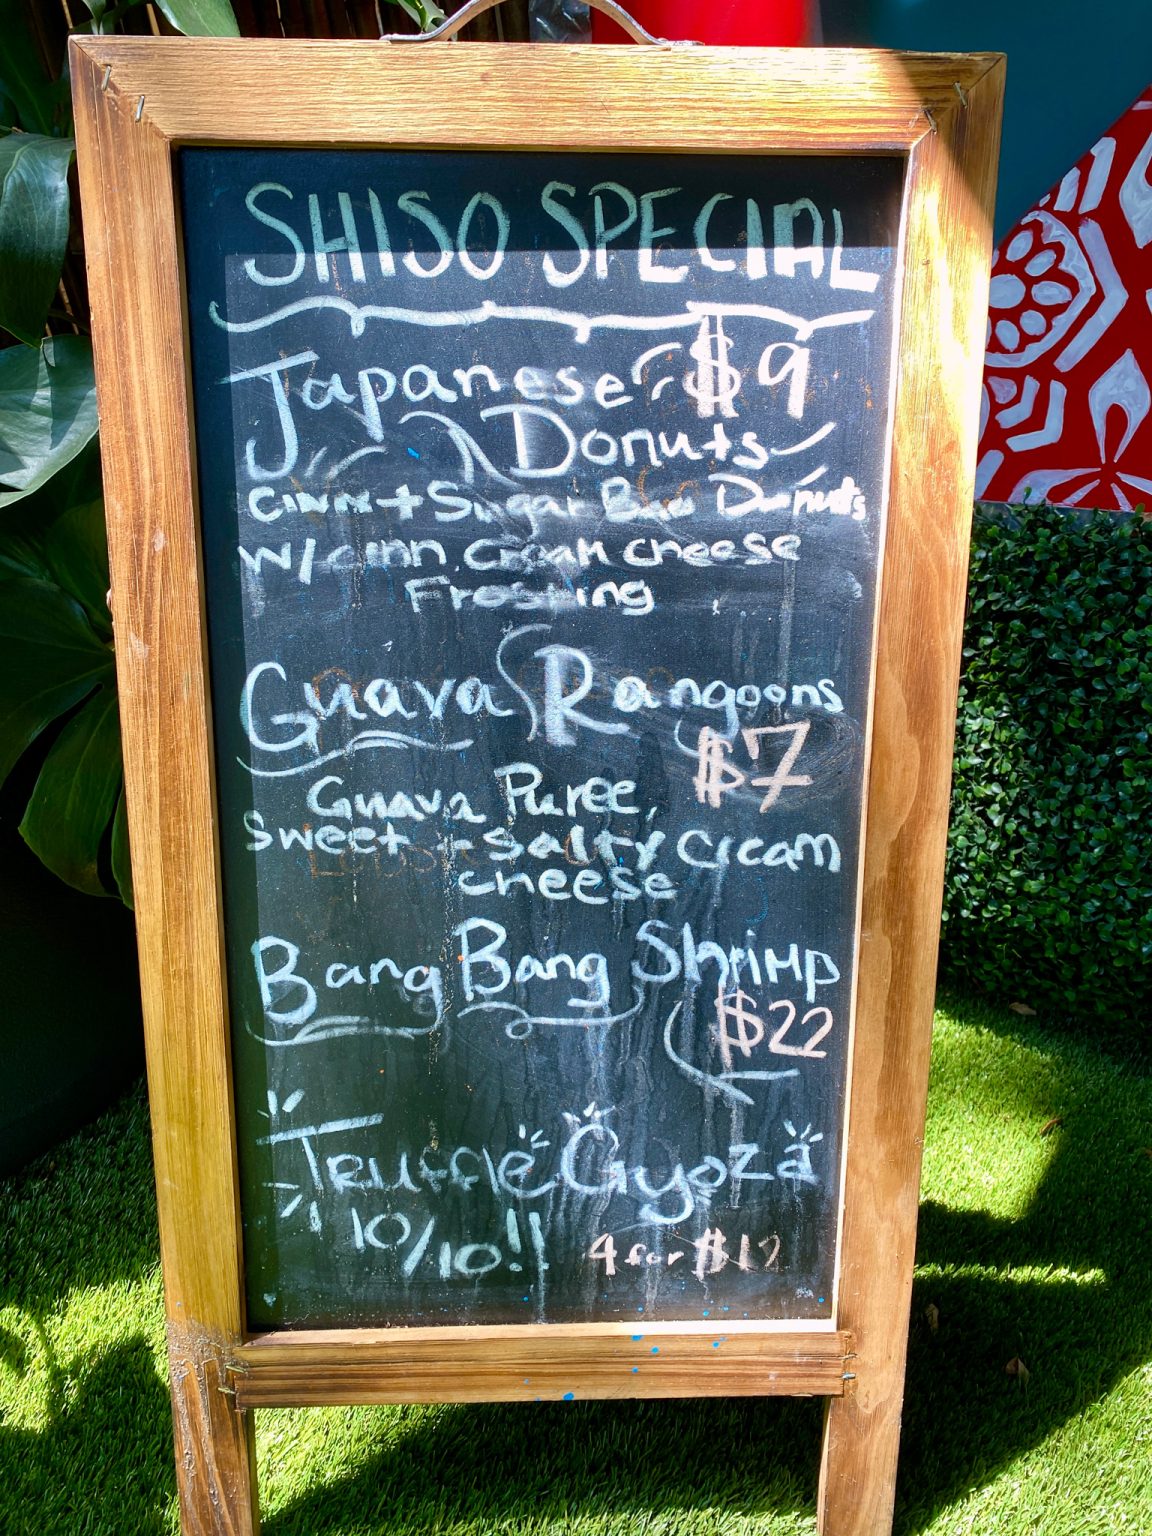 SHISO SPECIAL
Japanese $9
Donuts
Cinn + Sugar Bao Donuts
W/ cinn. Cream cheese
Frosting
Guava Rangoons
$7
Guava Puree,
Sweet + Salty Cream
cheese
Bang Bang Shrimp
$22
Truffle Gyoza
10/10!! 4 for $12